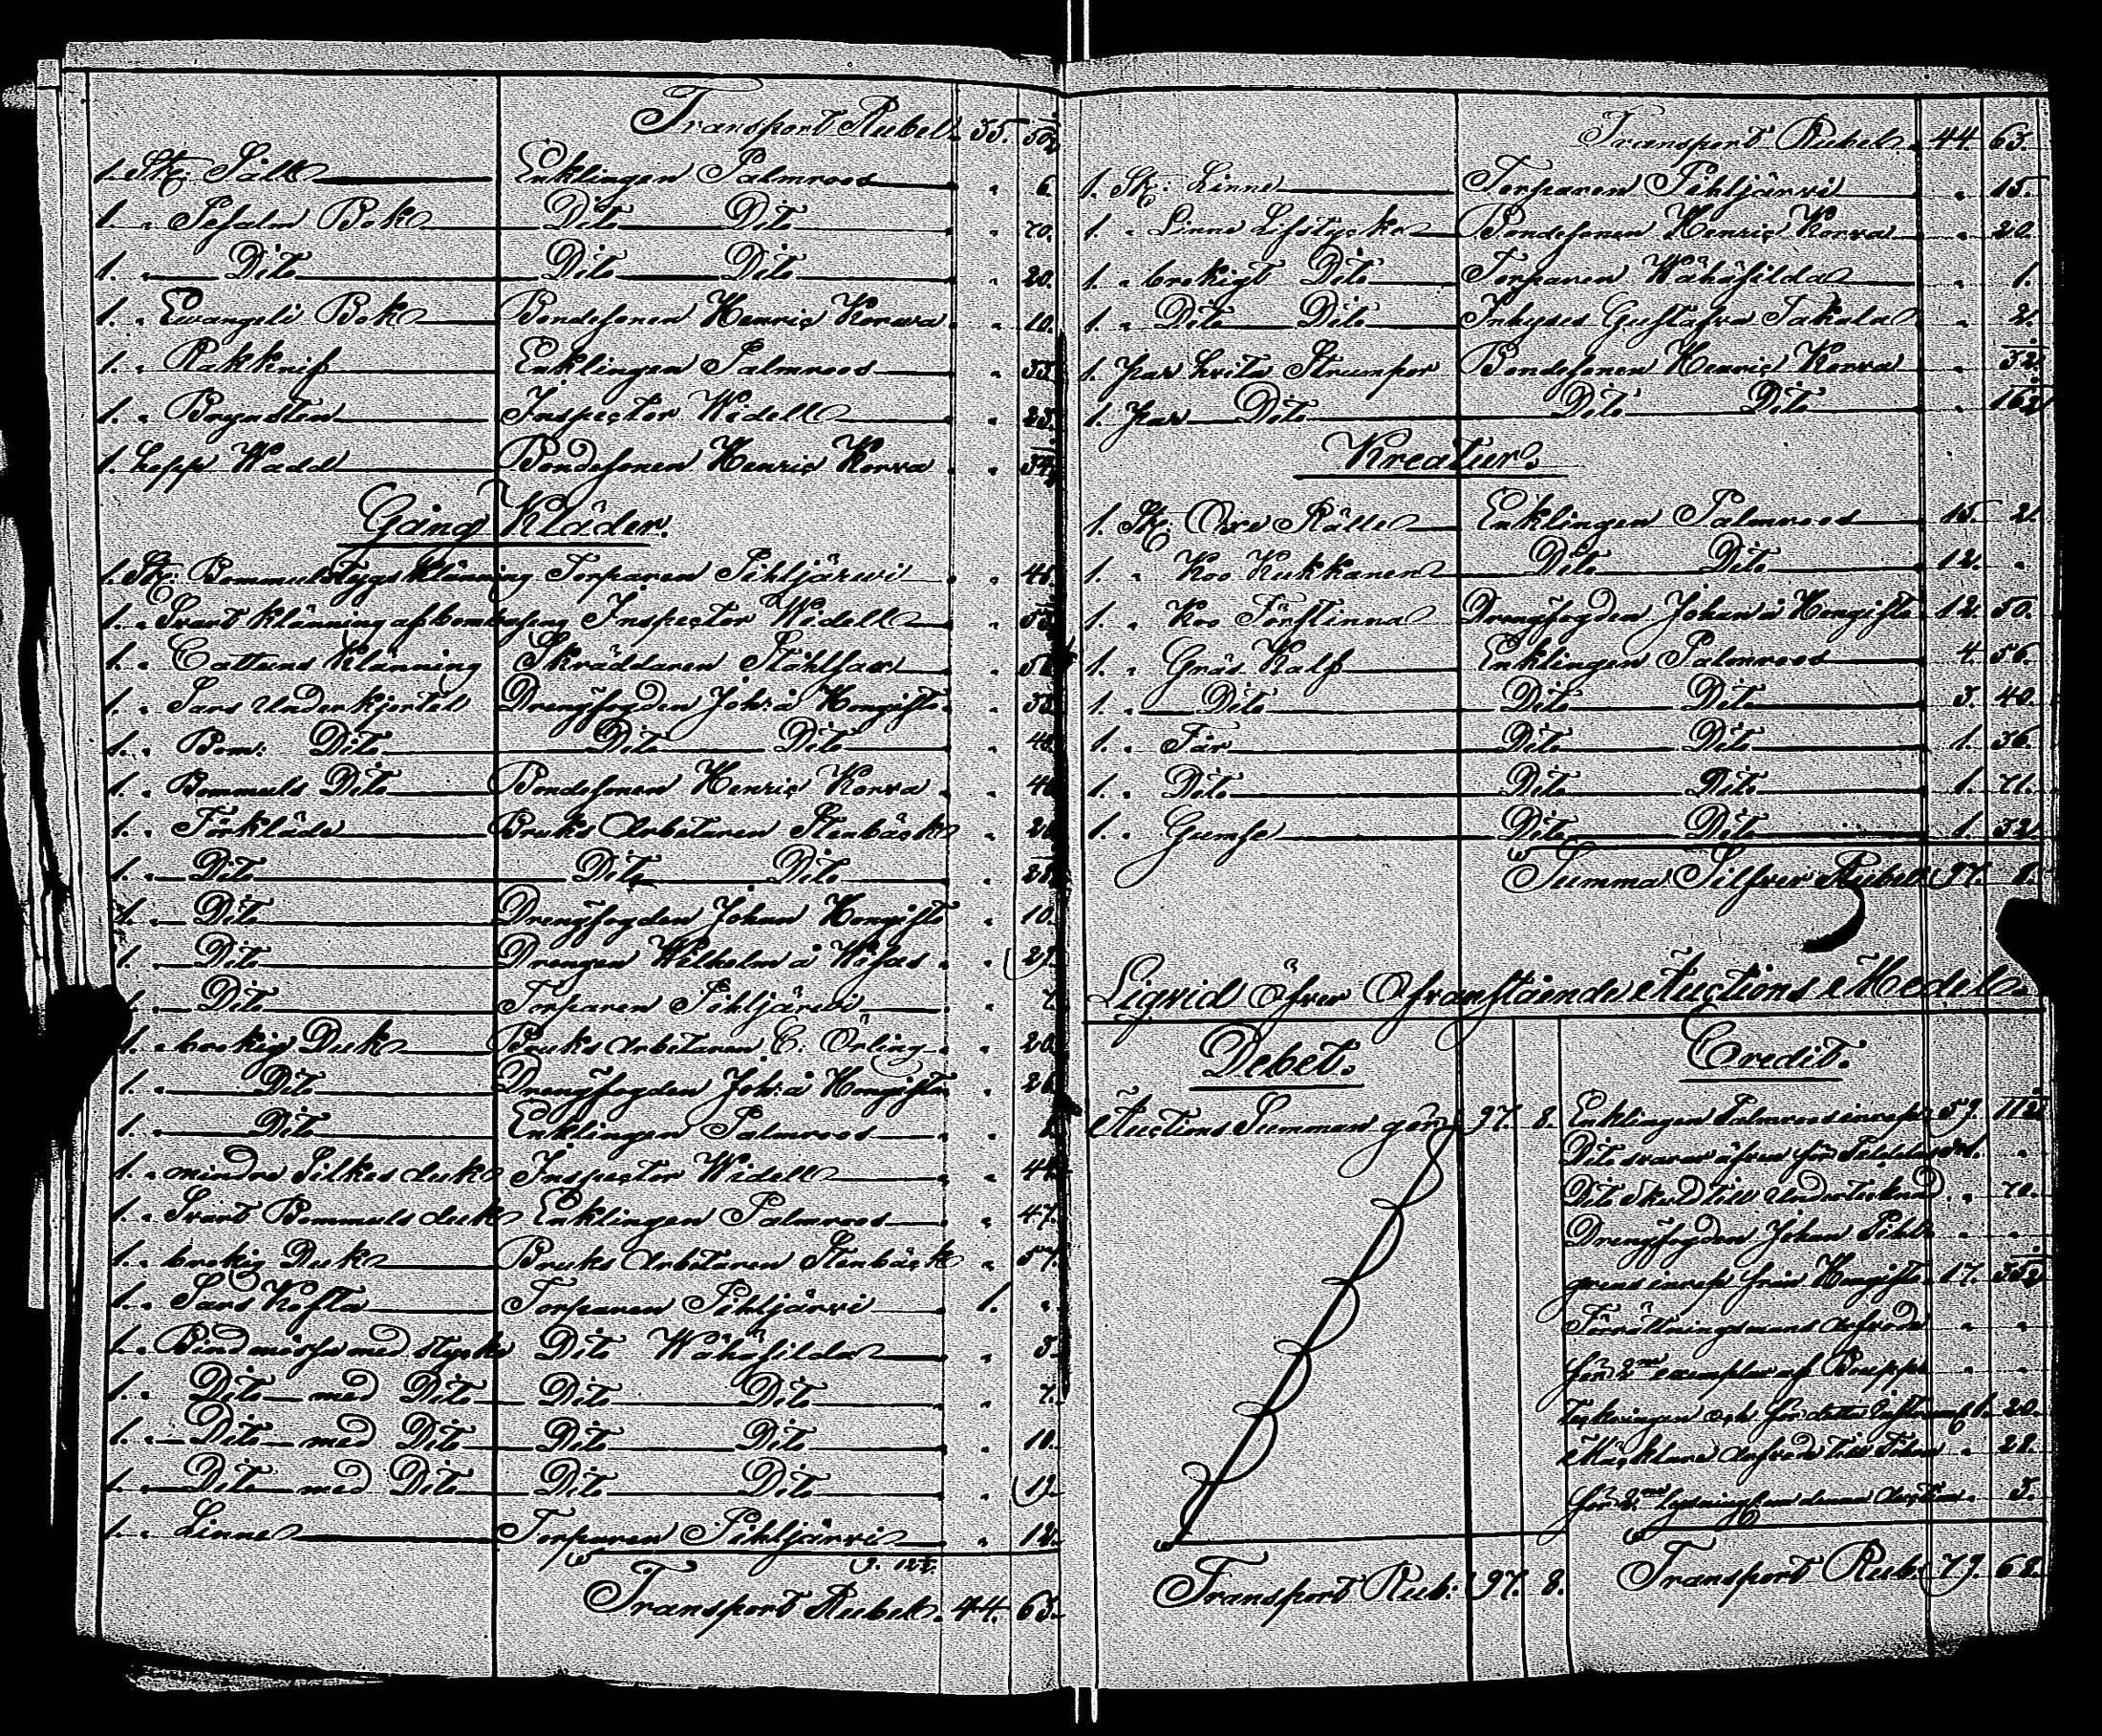 Transport Rubel. 35. 50
1. St: Såll Enklingen Palmroos " 6.
1. " Psalm Bok Dito Dito " 70.
1. " Dito Dito Dito " 20.
1. " Ewangeli Bok Bondesonen Henric Korwa " 10.
1. " Rakknif Enklingen Palmroos " 33
1. " Brynsten Inspector Widell " 23.
1. Lapp Wadd Bondesonen Henric Korva "
Gång Kläder.
1. St: Bommulstygs Klänning Torparen Pihljärwi " 41.
1. " Svart Klänning af Inspector Widell "
1. " Cattuns Klänning Skräddaren "
1. " Sars Underkjortel Drengfogden Joh: å Hongisto "
1. " Bom: Dito Dito Dito " 40.
1. " Bommuls Dito Bondesonen Henric Korva "
1. " Förkläde Bruks Arbetaren Stenbäck "
1. " Dito Dito Dito "
1. " Dito Drengfogden Johan Hongisto " 10.
1. " Dito Drengen Wilhelm å " 21.
1. " Dito Torparen Pihljärwi " 7.
1. " brokig Duk Bruks Arbetaren C. Örling " 20.
1. " Dito Drengfogden Joh: å Hongisto " 26.
1. " Dito Enklingen Palmroos "
1. " mindre Silkes duk Inspector Widell " 41.
1. " Svart Bommuls duk Enklingen Palmroos " 47.
1. " brokig Duk Bruks Arbetaren Stenbäck " 57.
1. " Sars Kofta Torparen Pihljärvi 1. "
1. " Bindmössa med stycke Dito Wähäsilda " 3.
1. " Dito med Dito Dito Dito " 7.
1. " Dito med Dito Dito Dito " 10.
1. " Dito med Dito Dito Dito " 12.
1. " Linne Torparen Pihljärvi " 12.
9. 12½.
Transport Rubel. 44. 63.
Transport Rubel. 44. 63.
1. St: Linne Torparen Pihljärvi " 15.
1. " Linne Lifstycke Bondesonen Henric Korva " 20.
1. " brokigt Dito Torparen Wähäsilda " 1.
1. " Dito Dito Inhyses Gustafva Takala " 2.
1. Par hvita Strumpor Bondesonen Henric Korva " 32.
1. Par Dito Dito Dito " 16½
Kreatur.
1. St: Oxe Rälle Enklingen Palmroos 15. 21.
1. " Koo Kukkanen Dito Dito 12. "
1. " Koo Förstinna Drengfogden Johan å Hongisto 12. 50.
1. " Gräs Kalf Enklingen Palmroos 4. 56.
1. " Dito Dito Dito 3. 40.
1. " Får Dito Dito 1. 36.
1. " Dito Dito Dito 1. 71.
1. " Gumse Dito Dito 1. 32.
Summa Silfver Rubel 97. 8.
Liqvid öfver Ofvanstående Auctions Medel.
Debet. Credit.
Auctions Summan gör 97. 8.
Enklingen Palmroos inrop 59. 11½
Dito svarar äfven för
Dito skuld till Undertecknad " 70.
Drengfogden Johan " "
inrop från Hongisto 17. 35½
Förrättningsmans Arfvode " "
för 2ne exemplar af " "
och för detta 1. 20.
Mäcklare Arfvode till " 28.
för 2ne lysningar om denna Auction " 3.
Transport Rub: 97. 8.
Transport Rub: 79. 68.